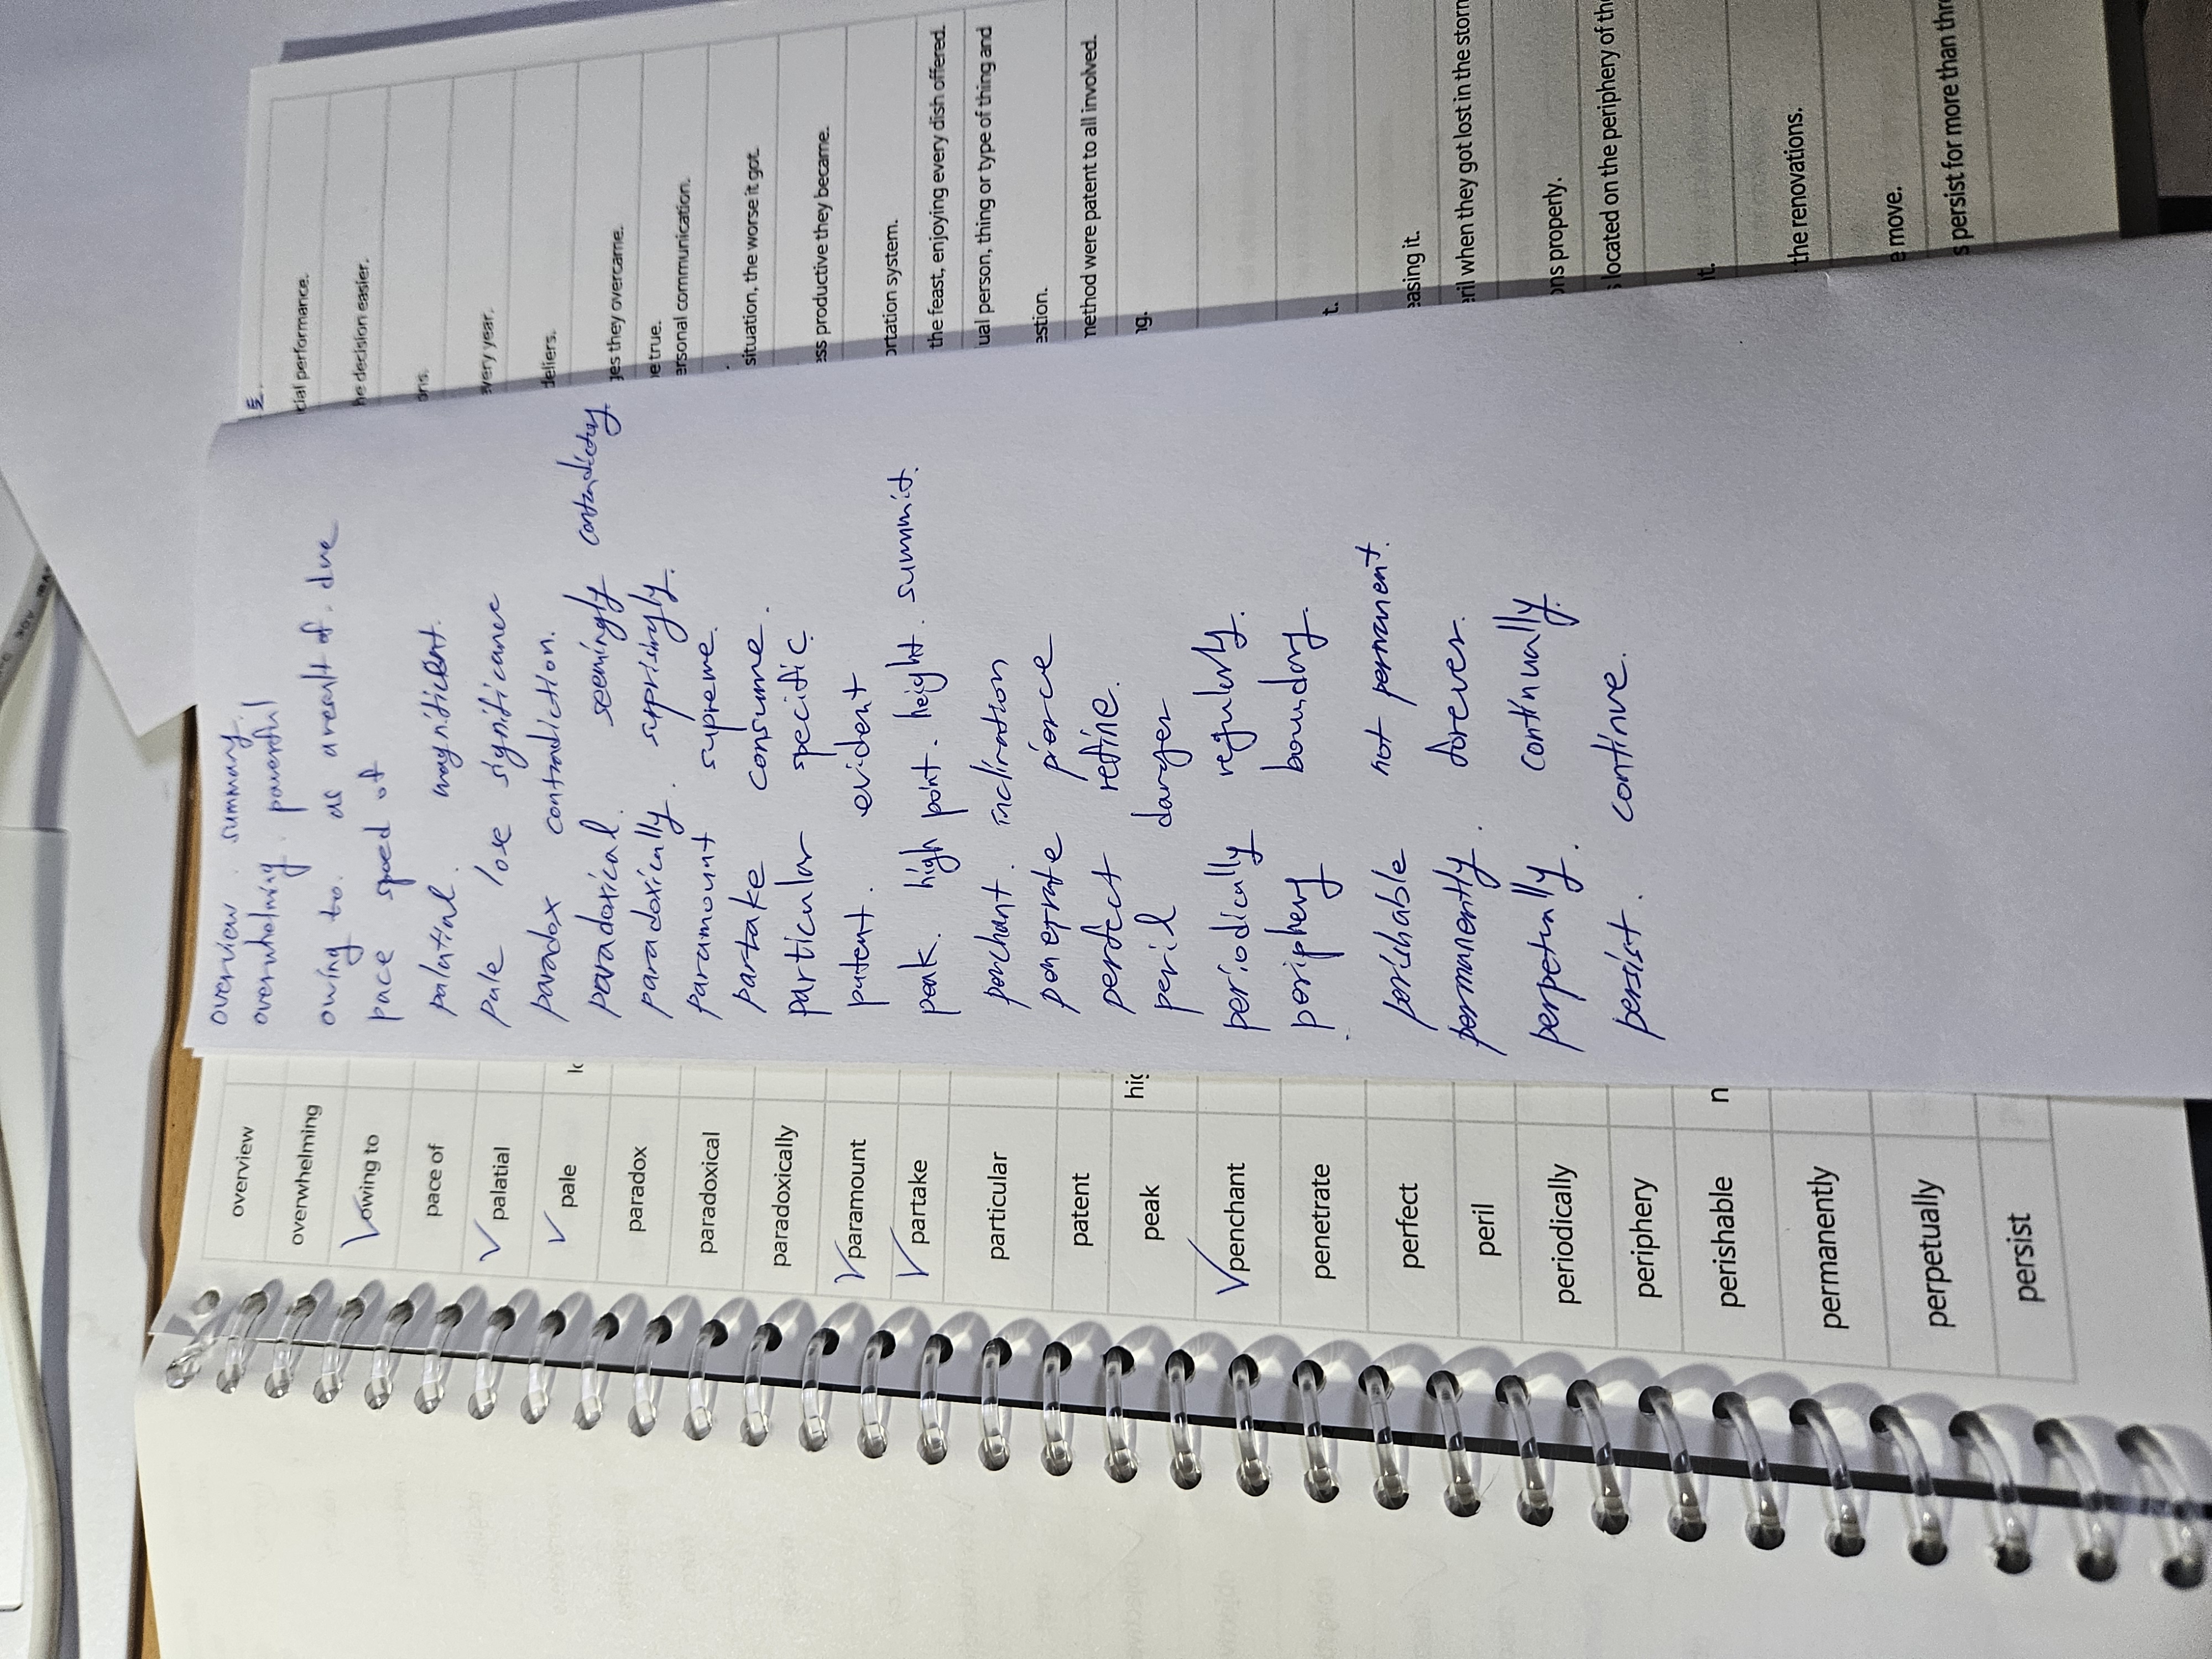 overview
overwhelming
owing to
pace of
palatial
pale
paradox
paradoxical
paradoxically
paramount
partake
particular
patent
peak
penchant
penetrate
perfect
peril
periodically
periphery
perishable
permanently
perpetually
persist
hig
n
overview . summary.
overwhelming . powerful
owing to. as a result of. due
pace speed of
palatial. magnificent.
pale lose significance
paradox contradiction.
paradoxical. seemingly contradictory
paradoxically. surprisingly.
paramount supreme.
partake consume.
particular specific.
patent. evident
peak. high point. height. summit.
penchant. inclination
penetrate pierce
perfect refine.
peril danger
periodically regularly.
periphery boundary.
perishable not permanent.
permanently. forever.
perpetually. continually.
persist. continue.
cial performance.
he decision easier.
ons.
every year.
deliers.
ges they overcame.
be true.
ersonal communication.
situation, the worse it got.
ess productive they became.
ortation system.
the feast, enjoying every dish offered.
ual person, thing or type of thing and
estion.
nethod were patent to all involved.
ng.
t.
easing it.
eril when they got lost in the storm
ons properly.
located on the periphery of the
it.
the renovations.
e move.
s persist for more than thr